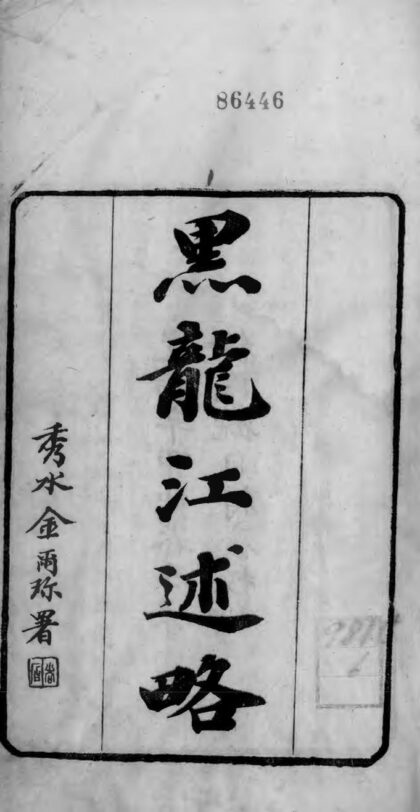 86446
黑龍江述略
秀水金爾珍署